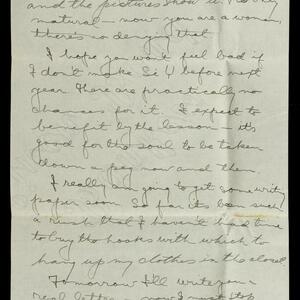 and the pictures show it.
natural - now you are a woman,
there's no denying that
I hope you won't feel bad if
I don't make Si U before next
year There are practically no
chances for it. I expect to
benefit by the lesson - it's
good for the soul to be taken
down a peg now and then.
I really am going to get some writing
paper soon So far its been such
a rush that I haven't had time
to buy the hooks with which to
hang up my clothes in the closet.
Tomorrow I'll write you a
real letter, now I must stop